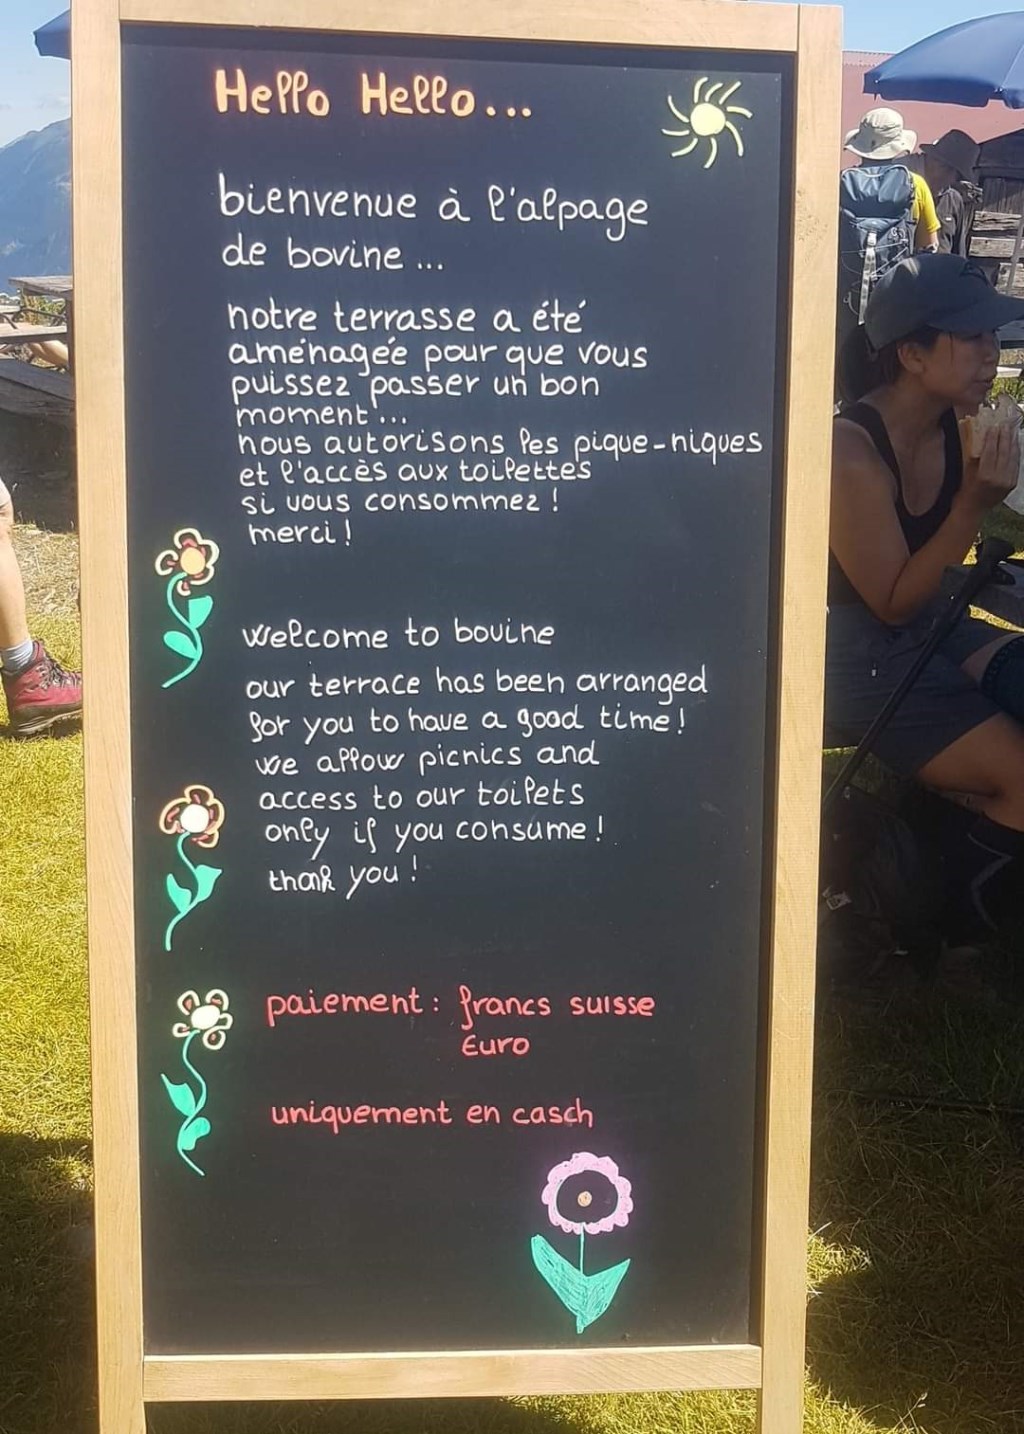 Hello Hello...
bienvenue à l'alpage
de bovine...
notre terrasse a été
aménagée pour que vous
puissez passer un bon
moment...
nous autorisons les pique-niques
et l'accès aux toilettes
si vous consommez!
merci!
welcome to bovine
our terrace has been arranged
for you to have a good time!
we allow picnics and
access to our toilets
only if you consume!
thank you!
paiement: francs suisse
Euro
uniquement en casch